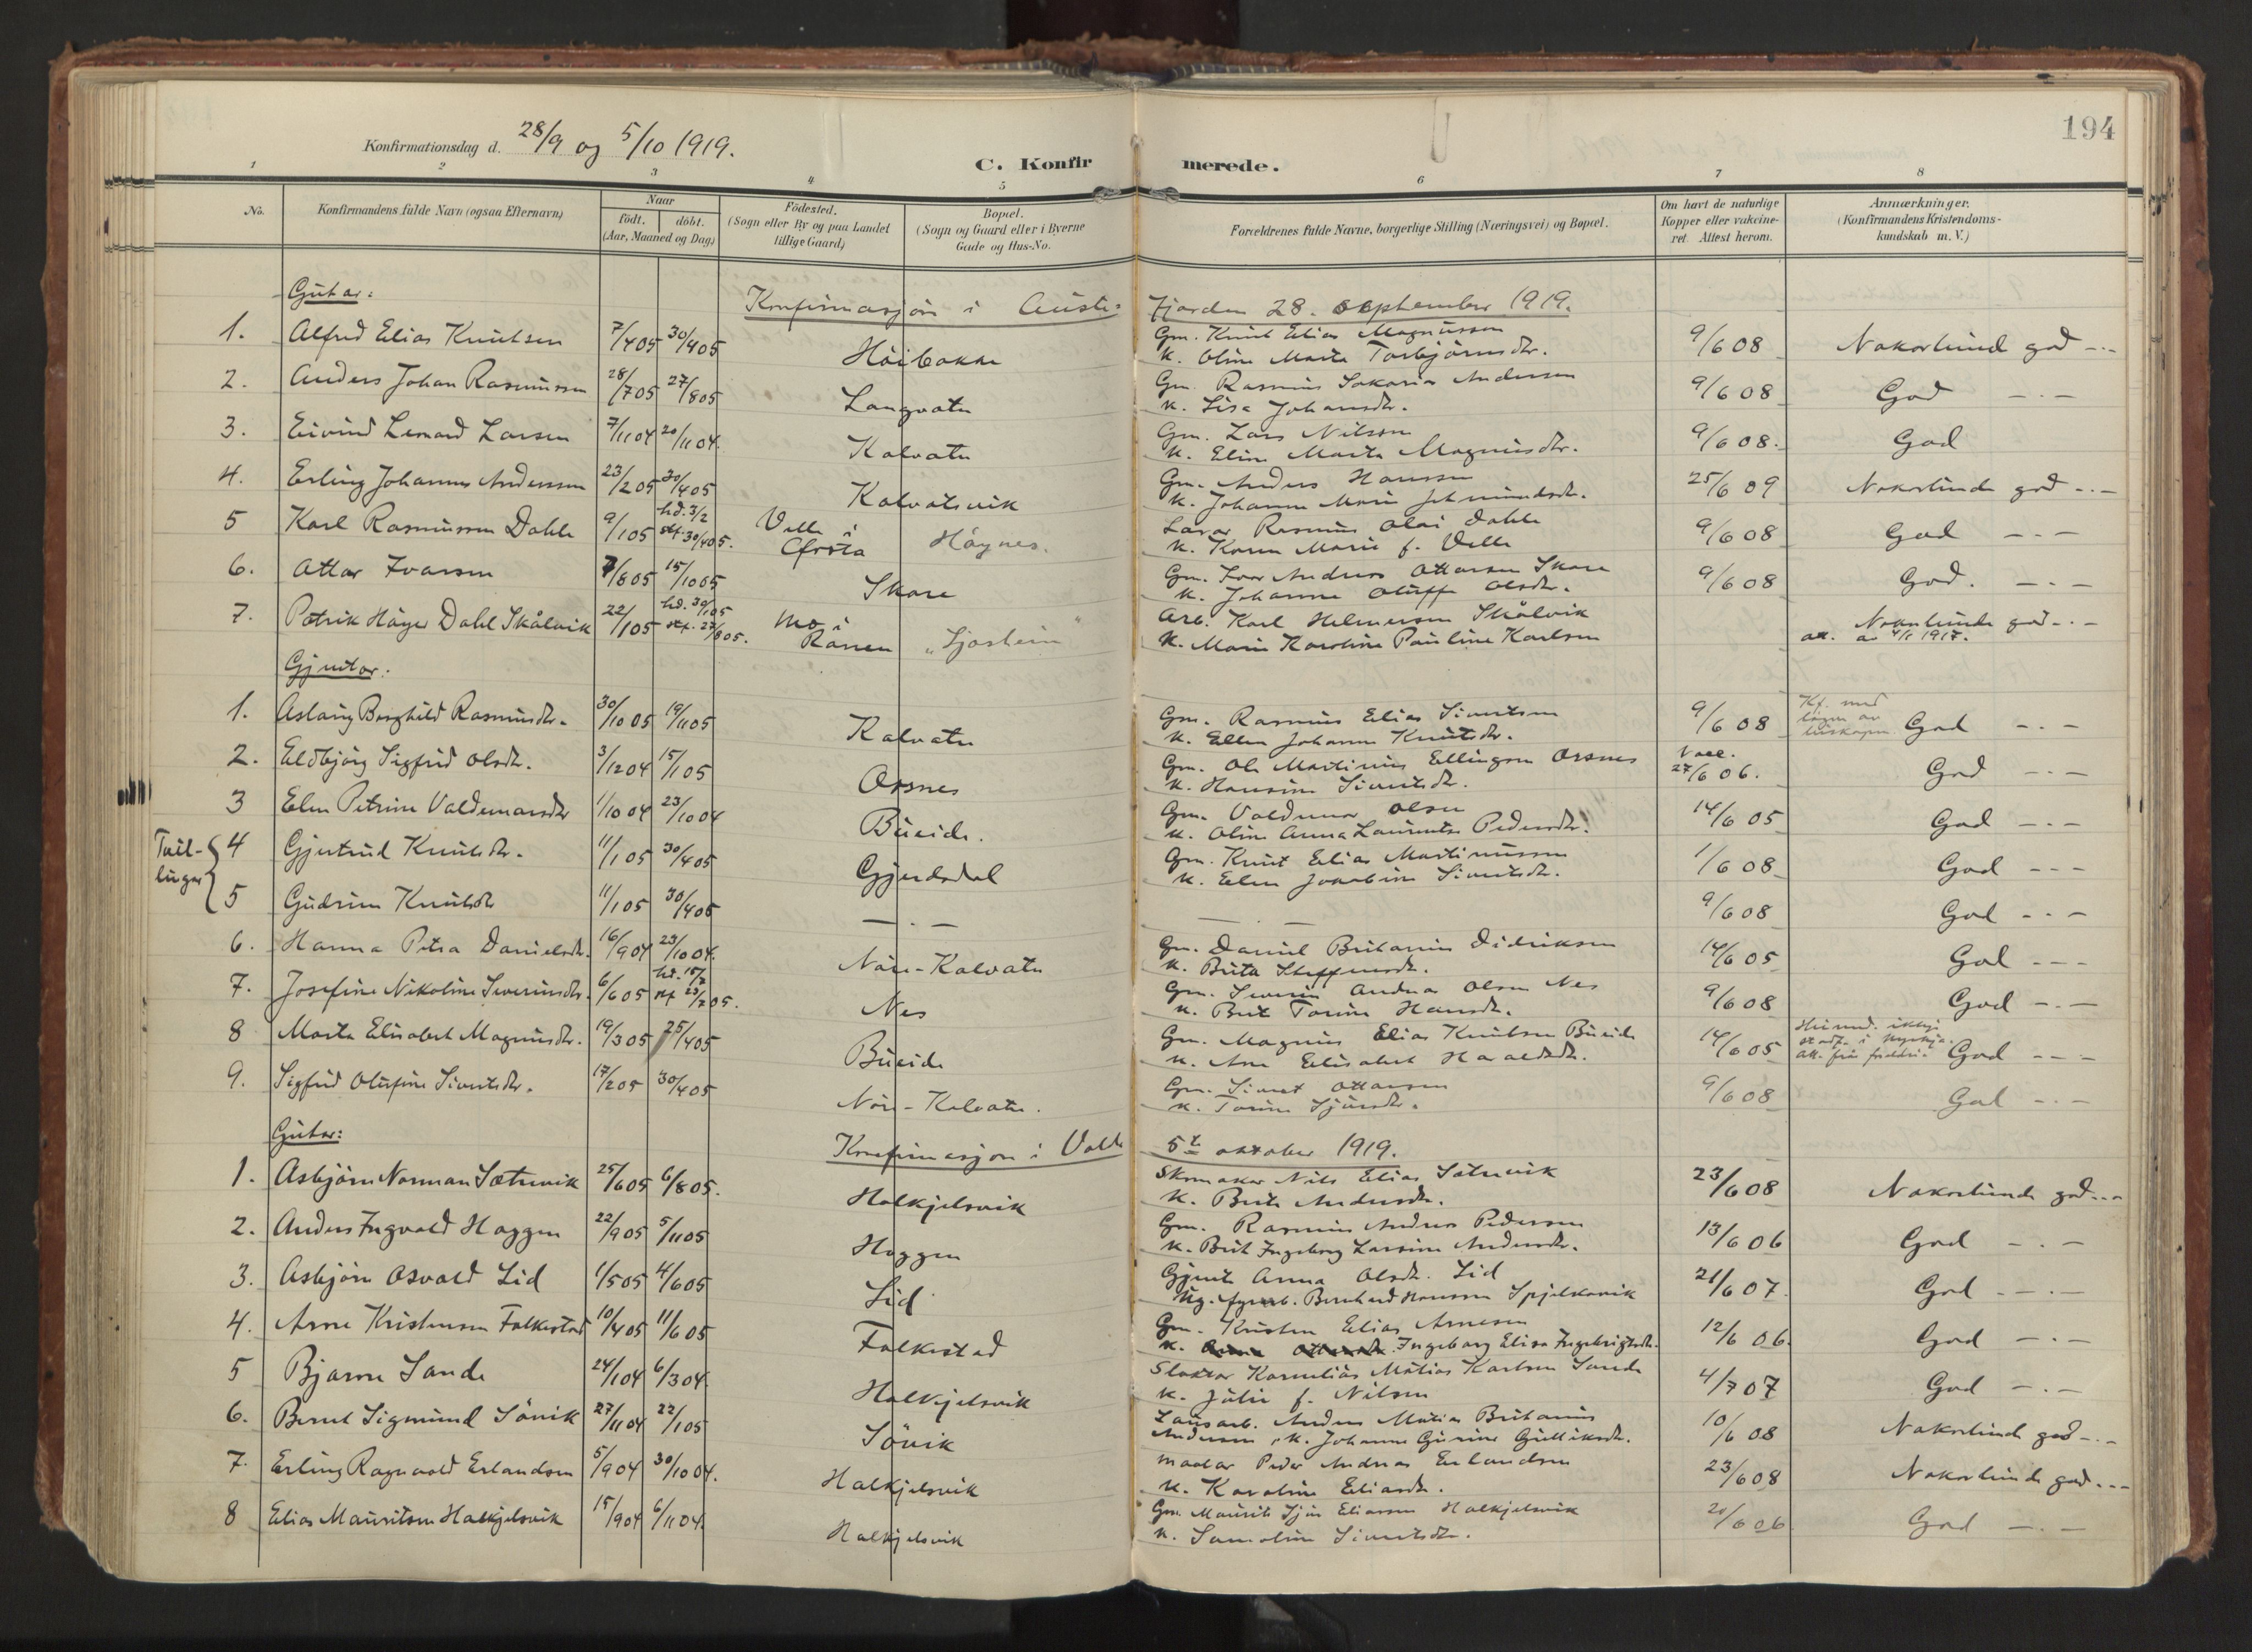 194
Konfirmationsdag d. 28/9 og 5/10 1919.
C. Konfirmerede.
1 2 3 4 5 6 7 8
No. Konfirmandens fulde Navn (ogsaa Efternavn) Naar födt. döbt. (Aar, Maaned og Dag) Födested. (Sogn eller By og paa Landet tillige Gaard) Bopæl. (Sogn og Gaard eller i Byerne Gade og Hus-No. Forældrenes fulde Navne, borgerlige Stilling (Næringsvei) og Bopæl. Om havt de naturlige Kopper eller vakcineret. Attest herom. Anmærkninger. (Konfirmandens Kristendomskundskab m. V.)
Gutar:
Konfirmasjon i Austefjorden 28. september 1919.
1. Alfred Elias Knutsen 7/4 05 30/4 05 Höibakke Gm. Knut Elias Magnussen 9/6 08 Nokorlunde god -.-
K. Oline Marta Torbjörnsdtr.
2. Anders Johan Rasmussen 28/7 05 27/8 05 Langvatn Gm. Rasmus Sakarias Andersen 9/6 08 God -.-
K. Lisa Johansdtr.
3. Eivind Lenard Larsen 7/11 04 20/11 04. Kalvatn Gm. Lars Nilsen 9/6 08. God
K. Eline Marta Magnusdtr.
4. Erling Johannes Anderssen 23/2 05 30/4 05 Kalvatsvik Gm. Anders Hanssen 25/6 09 Nokorlunde god -.-
K. Johanne Marie
5 Karl Rasmussen Dahle 9/1 05 hd. 3/2 stf. 30/4 05. Volle i Örsta Höynes. Lærar Rasmus Olai Dahle 9/6 08 God -.-
K. Karen Marie f. Velle
6. Ottar Ivarsen 7/8 05 15/10 05 Skare Gm. Ivar Andreas Ottarsen Skare 9/6 08 God. -.-
K. Johanne Oluffe Olsdtr.
7. Patrik Höyer Dahl Skålvik 22/1 05 hd. 30/1 05 stf. 27/8 05. Mo i Ranen "Sjøsheim" Arb. Karl Helmersen Skålvik Nokorlunde god -.-
K. Marie Karoline Pauline Karlsen att. av 4/1 1917.
Gjentor.
1. Aslaug Borghild Rasmusdtr. 30/10 05 19/11 05 Kalvatn Gm. Rasmus Elias Sivertsen 9/6 08 Kf. med löyve av biskopen God -.-
K. Ellen Johanne Knutsdtr.
2. Eldbjörg Sigfrid Olsdtr. 3/12 04 15/1 05 Orsnes Gm. Ole Martinus Ellingsen Orsnes Vacc. 27/6 06. God -.-
K. Hansine Sivertsdtr.
3 Elen Petrine Valdemarsdtr 1/10 04 23/10 04 Bueide. Gm. Valdemar Olsen 14/6 05 God -.-
K. Oline Anna Laurentse Pedersdtr.
Tvillingar
4 Gjertrud Knutsdtr. 11/1 05 30/4 05 Gjerdsdal Gm. Knut Elias Martinussen 1/6 08 God -.-
K. Elen Jakobine Sivertsdtr.
5 Gudrun Knutsdtr 11/1 05 30/4 05 -.- -.- 9/6 08 God -.-
6. Hanna Petra Danielsdtr. 16/9 04 23/10 04. Nöre-Kalvatn Gm. Daniel Britanius Didriksen 14/6 05 God -.-
K. Brita Steffensdtr.
7. Josefine Nikoline Severinsdtr. 6/6 05 hd. 15/7 stf 23/7 05. Nes Gm. Severin Andreas Olsen Nes 9/6 08 God -.-
K. Brit Torine Hansdtr.
8 Marta Elisabet Magnusdtr. 19/3 05 25/4 05 Bueide Gm. Magnus Elias Knutsen Bueide 14/6 05 Heimd. ikkje stadf. i kyrkja. att. frå foreldri God -.-
K. Ane Elisabet Haraldsdtr.
9. Sigfrid Olufine Sivertsdtr. 17/2 05 30/4 05 Nöre-Kalvatn. Gm. Sivert Ottarsen 9/6 08 God -.-
K. Torine Sjursdtr.
Gutar:
Konfirmasjon i Volda 5te oktober 1919.
1. Asbjörn Norman Sætrevik 25/6 05 6/8 05. Halkjelsvik Skomakar Nils Elias Sætrevik 23/6 08 Nokorlunde god -.-
K. Brite Andersdtr.
2. Anders Ingvald Haggen 22/9 05 5/11 05 Haggen Gm. Rasmus Andreas Pedersen 13/6 06 God -.-
K. Brit Ingeborg Larsine Andersdtr.
3. Asbjörn Osvald Lid 1/5 05 4/6 05 Lid Gjente Anna Olsdtr. Lid 21/6 07. God -.-
Ug. Bernhard Hanssen Spjelkavik
4. Arne Kristensen Folkestad 10/4 05 11/6 05 Folkestad Gm. Kristen Elias Arnesen 12/6 06. God -.-
K. Ingeborg Elisa Ingebrigtsdtr.
5 Bjarne Sande 24/1 04 6/3 04. Halkjelsvik Slaktar Kornelius Mátias Karlsen Sande 4/7 07 God -.-
K. Julie f. Nilsen
6. Bernt Sigmund Sövik 27/11 04 22/1 05 Sövik Lausarb. Anders Mátias Britanius 10/6 08 Nokorlunde god -.-
Andersen, K. Johanne Gurine Gullíksdtr.
7. Erling Ragnvald Erlandsen 5/9 04 30/10 04. Halkjelsvik Maalar Peder Andreas Erlandsen 23/6 08 Nokorlunde god -.-
K. Karoline Eliasdtr.
8 Elias Mauritsen Halkjelsvik 15/9 04 6/11 04. Halkjelsvik Gm. Maurits Sjur Eliassen Halkjelsvik 20/6 06 God -.-
K. Samoline Sivertsdtr.